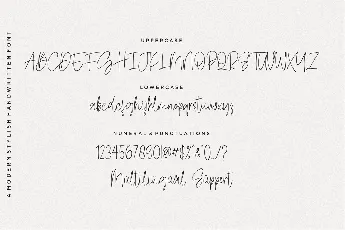 A MODERN STYLISH HANDWRITTEN FONT
UPPERCASE
ABCDEFGHIJKLMNOPQRSTUVWXYZ
LOWERCASE
abcdefghijklmnopqrstuvwxyz
NUMERAL & PUNCTUATIONS
Multilingual Support